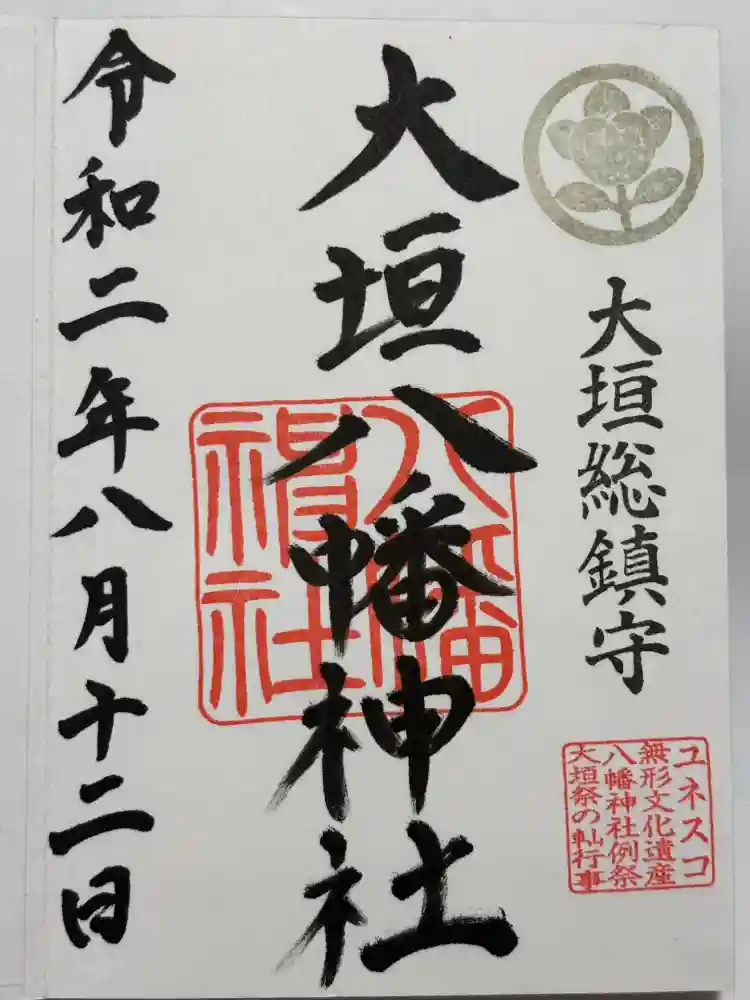 大垣総鎮守
ユネスコ
無形文化遺産
八幡神社例祭
大垣祭の軕行事
大垣八幡神社
八幡
神社
令和二年八月十二日